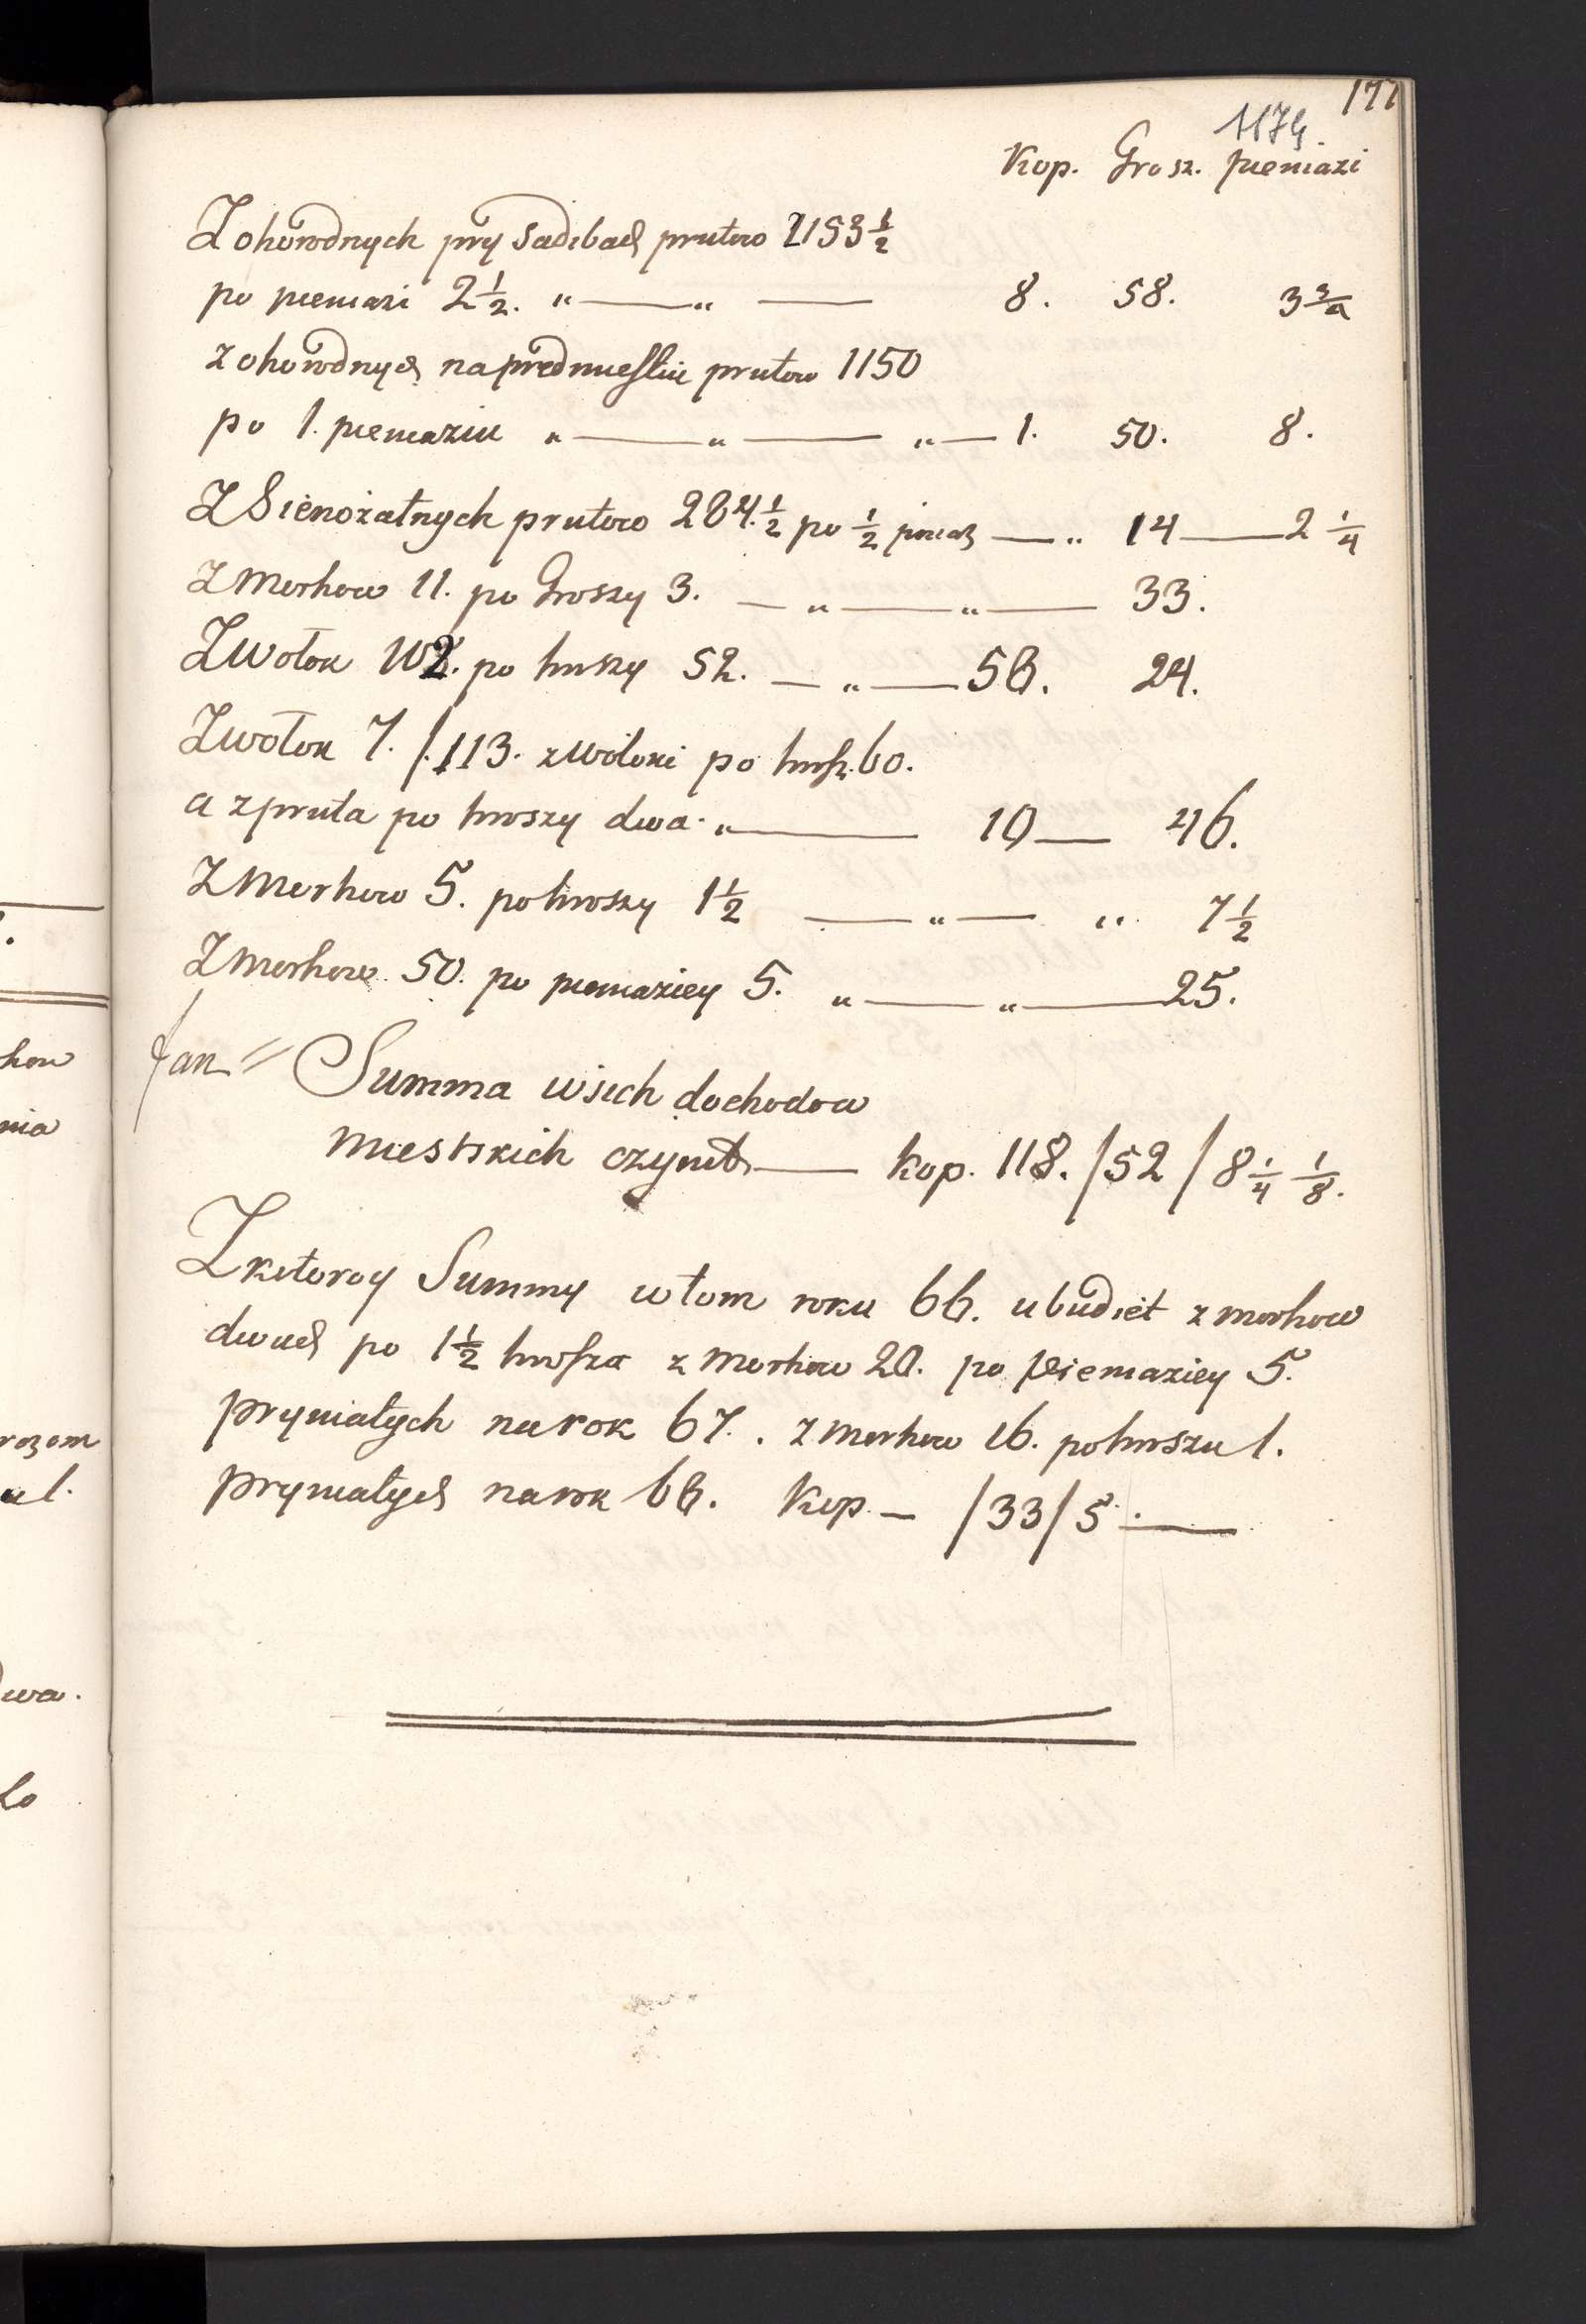 177
1174
Kop. Grosz. pieniazi
Z ohorodnych pry Sadibach prutow 2153 1/2
po pieniazi 2 1/2. " — " — 8. 58. 3 3/4
z ohorodnych na predmiestiu prutow 1150
po 1. pieniaziu " — " — " — 1. 50. 8.
Z Sienożatnych prutow 284 1/2 po 1/2 pieniaz — " 14 — 2 1/4
Z Morhow 11. po Groszy 3. — " — " — 33.
Z Wołok 112. po hroszy 52. — " — 58. 24.
Z wołok 7. /. 113. z wołoki po hrosz. 60.
a z pruta po hroszy dwa. " — 10 — 46.
Z Morhow 5. po hroszy 1 1/2 — " — " 7 1/2
Z Morhow 50. po pieniaziey 5. " — " — 25.
Summa wsich dochodow
miestskich czynit — Kop. 118. / 52 / 8 1/4 1/8.
Z kotoroy Summy w tom roku 66. ubudiet z morhow
dwuch po 1 1/2 hrosza z Morhow 20. po pieniaziey 5.
pryniatych na rok 67. . z Morhow 16. po hroszu 1.
pryniatych na rok 68. Kop. — / 33 / 5 . —
how
nia
rozom
u 1.
dwa.